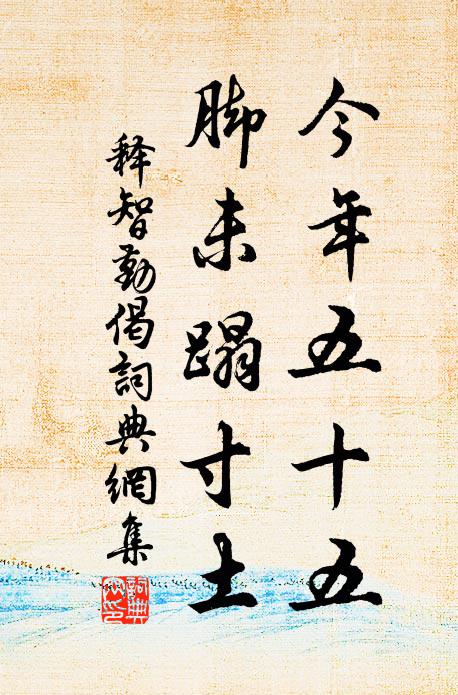 今年五十五
脚未蹋寸土
释智勤偈詞典網集